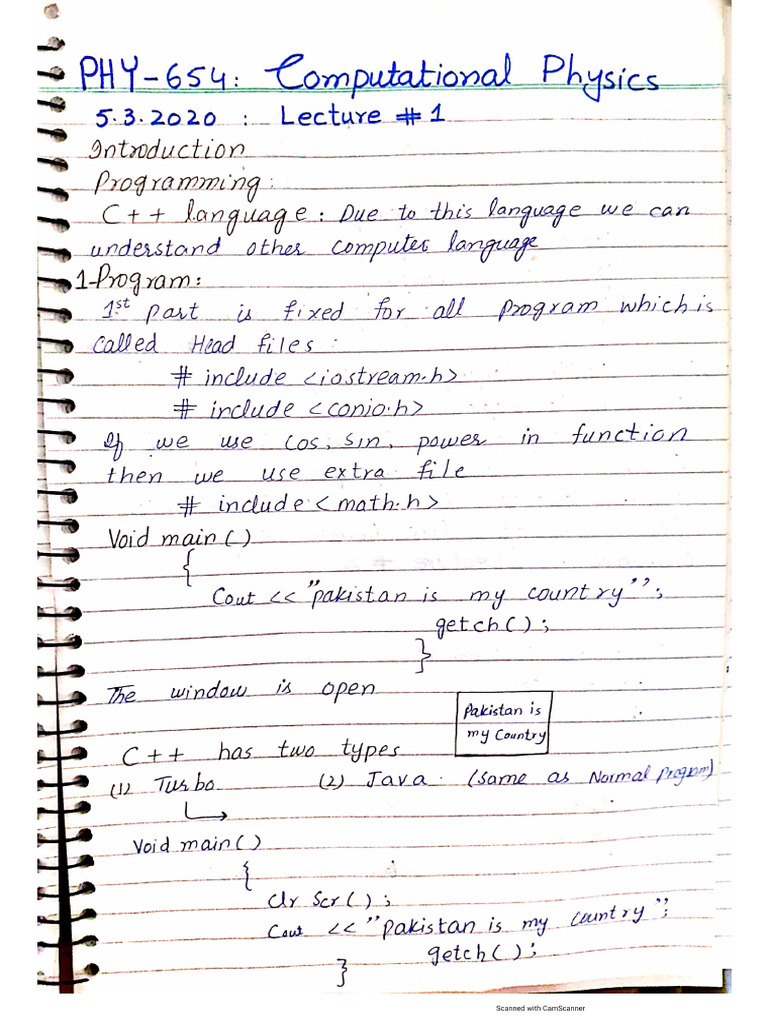 PHY-654: Computational Physics
5.3.2020 : Lecture # 1
Introduction
Programming:
C++ language: Due to this language we can
understand other computer language
1-Program:
1st part is fixed for all program which is
called Head files:
# include <iostream.h>
# include <conio.h>
If we use cos, sin, power in function
then we use extra file
# include <math.h>
Void main()
{
Cout << "pakistan is my country";
getch();
}
The window is open
Pakistan is
my Country
C++ has two types
(1) Turbo (2) Java (same as Normal Program)
Void main()
{
Clr Scr();
Cout << "pakistan is my country";
getch();
}
Scanned with CamScanner